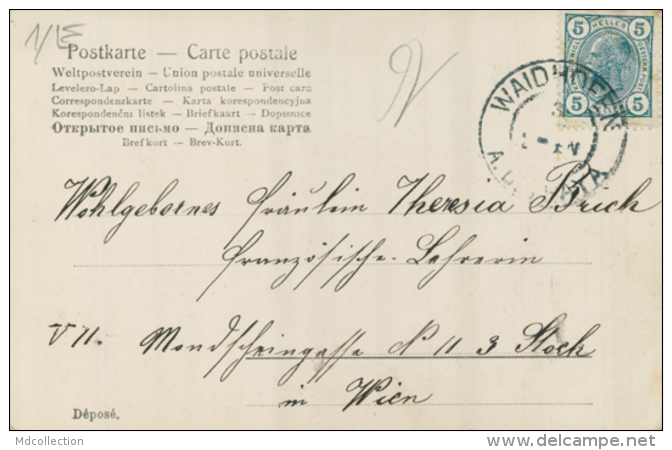 1/LE
Postkarte — Carte postale
Weltpostverein — Union postale universelle
Levelezo-Lap — Cartolina postale — Post card
Correspondenzkarte — Karta korespondencyjna
Korespondenčni listek — Briefkaart — Dopisnice
Открытое письмо — Дописна карта
Brefkort — Brev-Kort.
5 HELLER 5
5 5
WAIDHOFEN
A.D.
Wohlgebornes Fräulein Theresia Bruch
französische Lehrerin
VII. Mondscheingasse N 11 3 Stock
in Wien
Déposé.
Mdcollection
www.delcampe.net